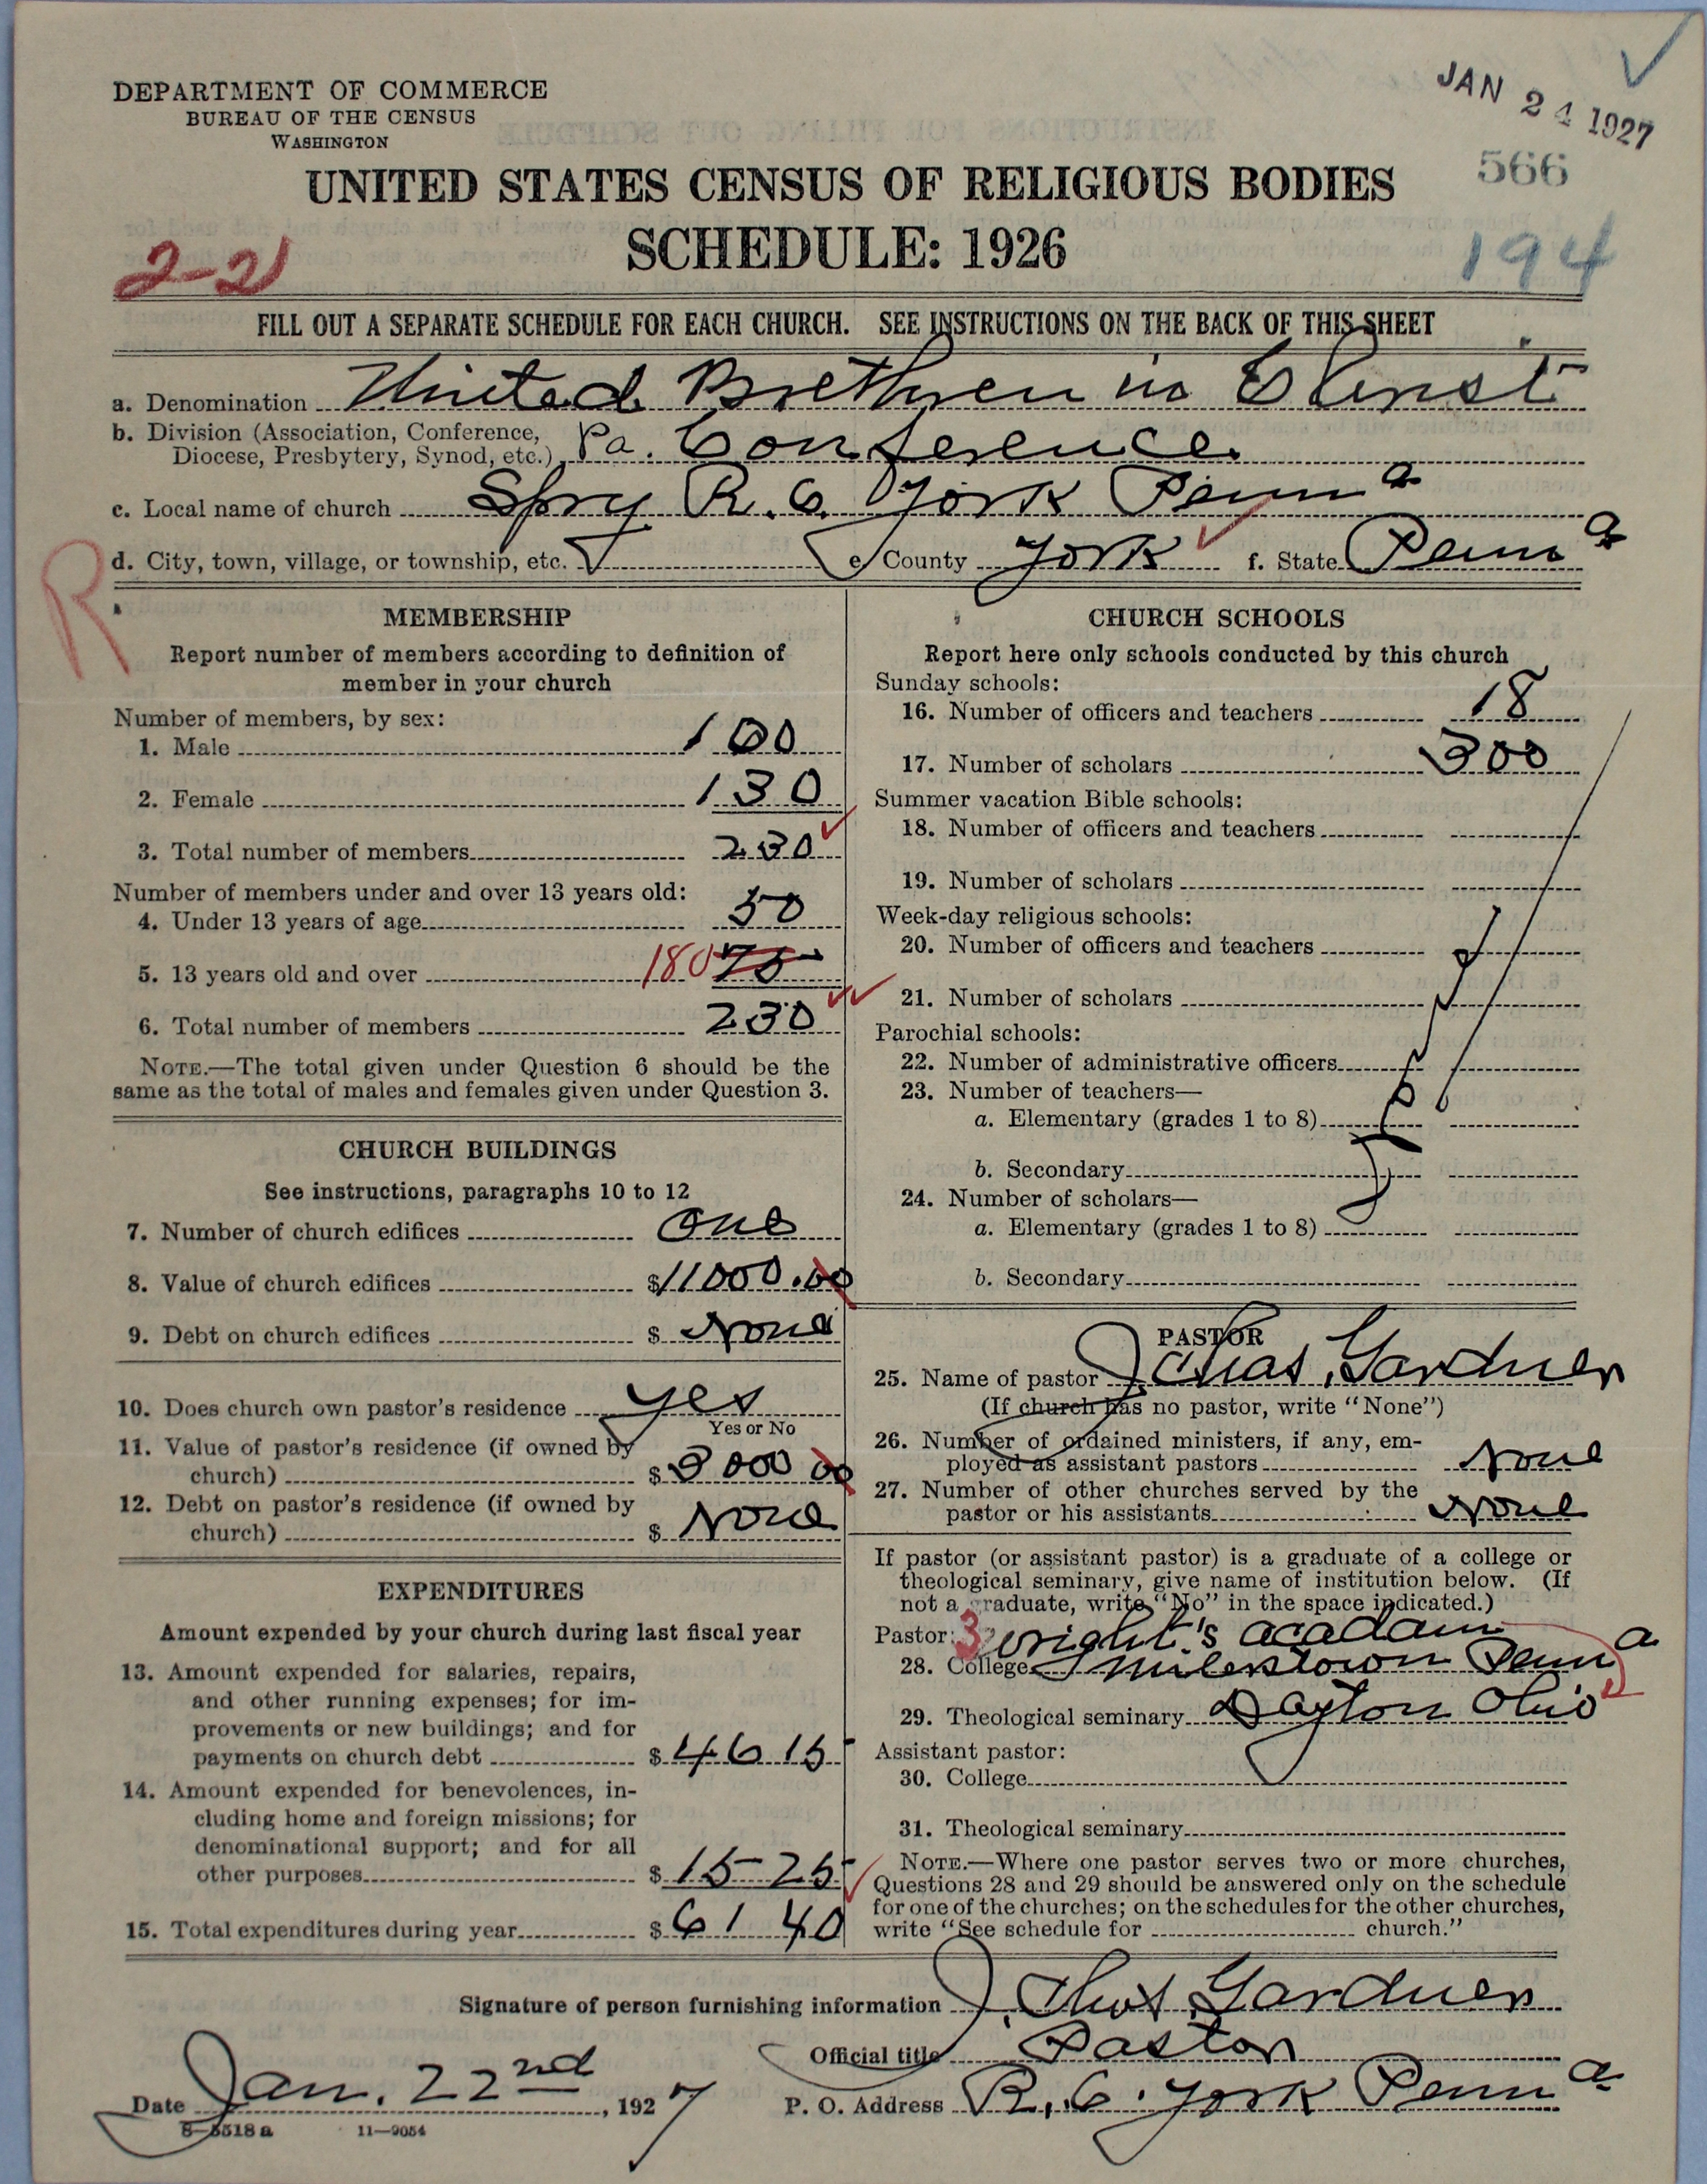 JAN 24 1927
DEPARTMENT OF COMMERCE
BUREAU OF THE CENSUS
WASHINGTON
566
UNITED STATES CENSUS OF RELIGIOUS BODIES
SCHEDULE: 1926
2-21
194
FILL OUT A SEPARATE SCHEDULE FOR EACH CHURCH. SEE INSTRUCTIONS ON THE BACK OF THIS SHEET
a. Denomination United Brethren in Christ
b. Division (Association, Conference,
Diocese, Presbytery, Synod, etc.) Pa. Conference
c. Local name of church Spry R.6. York Penna
R
d. City, town, village, or township, etc. e. County York f. State Penna
MEMBERSHIP
Report number of members according to definition of
member in your church
Number of members, by sex:
1. Male 100
2. Female 130
3. Total number of members 230
Number of members under and over 13 years old:
4. Under 13 years of age 50
5. 13 years old and over 180 75
6. Total number of members 230
NOTE.—The total given under Question 6 should be the
same as the total of males and females given under Question 3.
CHURCH BUILDINGS
See instructions, paragraphs 10 to 12
7. Number of church edifices one
8. Value of church edifices $11000.00
9. Debt on church edifices $ None
10. Does church own pastor's residence yes
Yes or No
11. Value of pastor's residence (if owned by
church) $3000 00
12. Debt on pastor's residence (if owned by
church) $ None
EXPENDITURES
Amount expended by your church during last fiscal year
13. Amount expended for salaries, repairs,
and other running expenses; for im-
provements or new buildings; and for
payments on church debt $4615
14. Amount expended for benevolences, in-
cluding home and foreign missions; for
denominational support; and for all
other purposes $1525
15. Total expenditures during year $6140
CHURCH SCHOOLS
Report here only schools conducted by this church
Sunday schools:
16. Number of officers and teachers 18
17. Number of scholars 300
Summer vacation Bible schools:
18. Number of officers and teachers
19. Number of scholars
Week-day religious schools:
20. Number of officers and teachers
21. Number of scholars
Parochial schools:
22. Number of administrative officers
23. Number of teachers—
a. Elementary (grades 1 to 8)
b. Secondary
24. Number of scholars—
a. Elementary (grades 1 to 8)
b. Secondary
PASTOR
25. Name of pastor J. Chas. Gardner
(If church has no pastor, write "None")
26. Number of ordained ministers, if any, em-
ployed as assistant pastors None
27. Number of other churches served by the
pastor or his assistants None
If pastor (or assistant pastor) is a graduate of a college or
theological seminary, give name of institution below. (If
not a graduate, write "No" in the space indicated.)
Pastor: 3 Wright's acadam
28. College Milerstown Penna
29. Theological seminary Dayton Ohio
Assistant pastor:
30. College
31. Theological seminary
NOTE.—Where one pastor serves two or more churches,
Questions 28 and 29 should be answered only on the schedule
for one of the churches; on the schedules for the other churches,
write "See schedule for church."
Signature of person furnishing information J. Chas. Gardner
Official title Pastor
Date Jan. 22nd, 1927 P. O. Address R.6. York Penna
8—5518a 11—9054